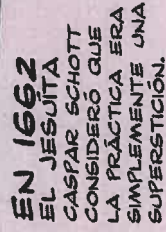 EN 1662
EL JESUÍTA
CASPAR SCHOTT
CONSIDERÓ QUE
LA PRÁCTICA ERA
SIMPLEMENTE UNA
SUPERSTICIÓN.